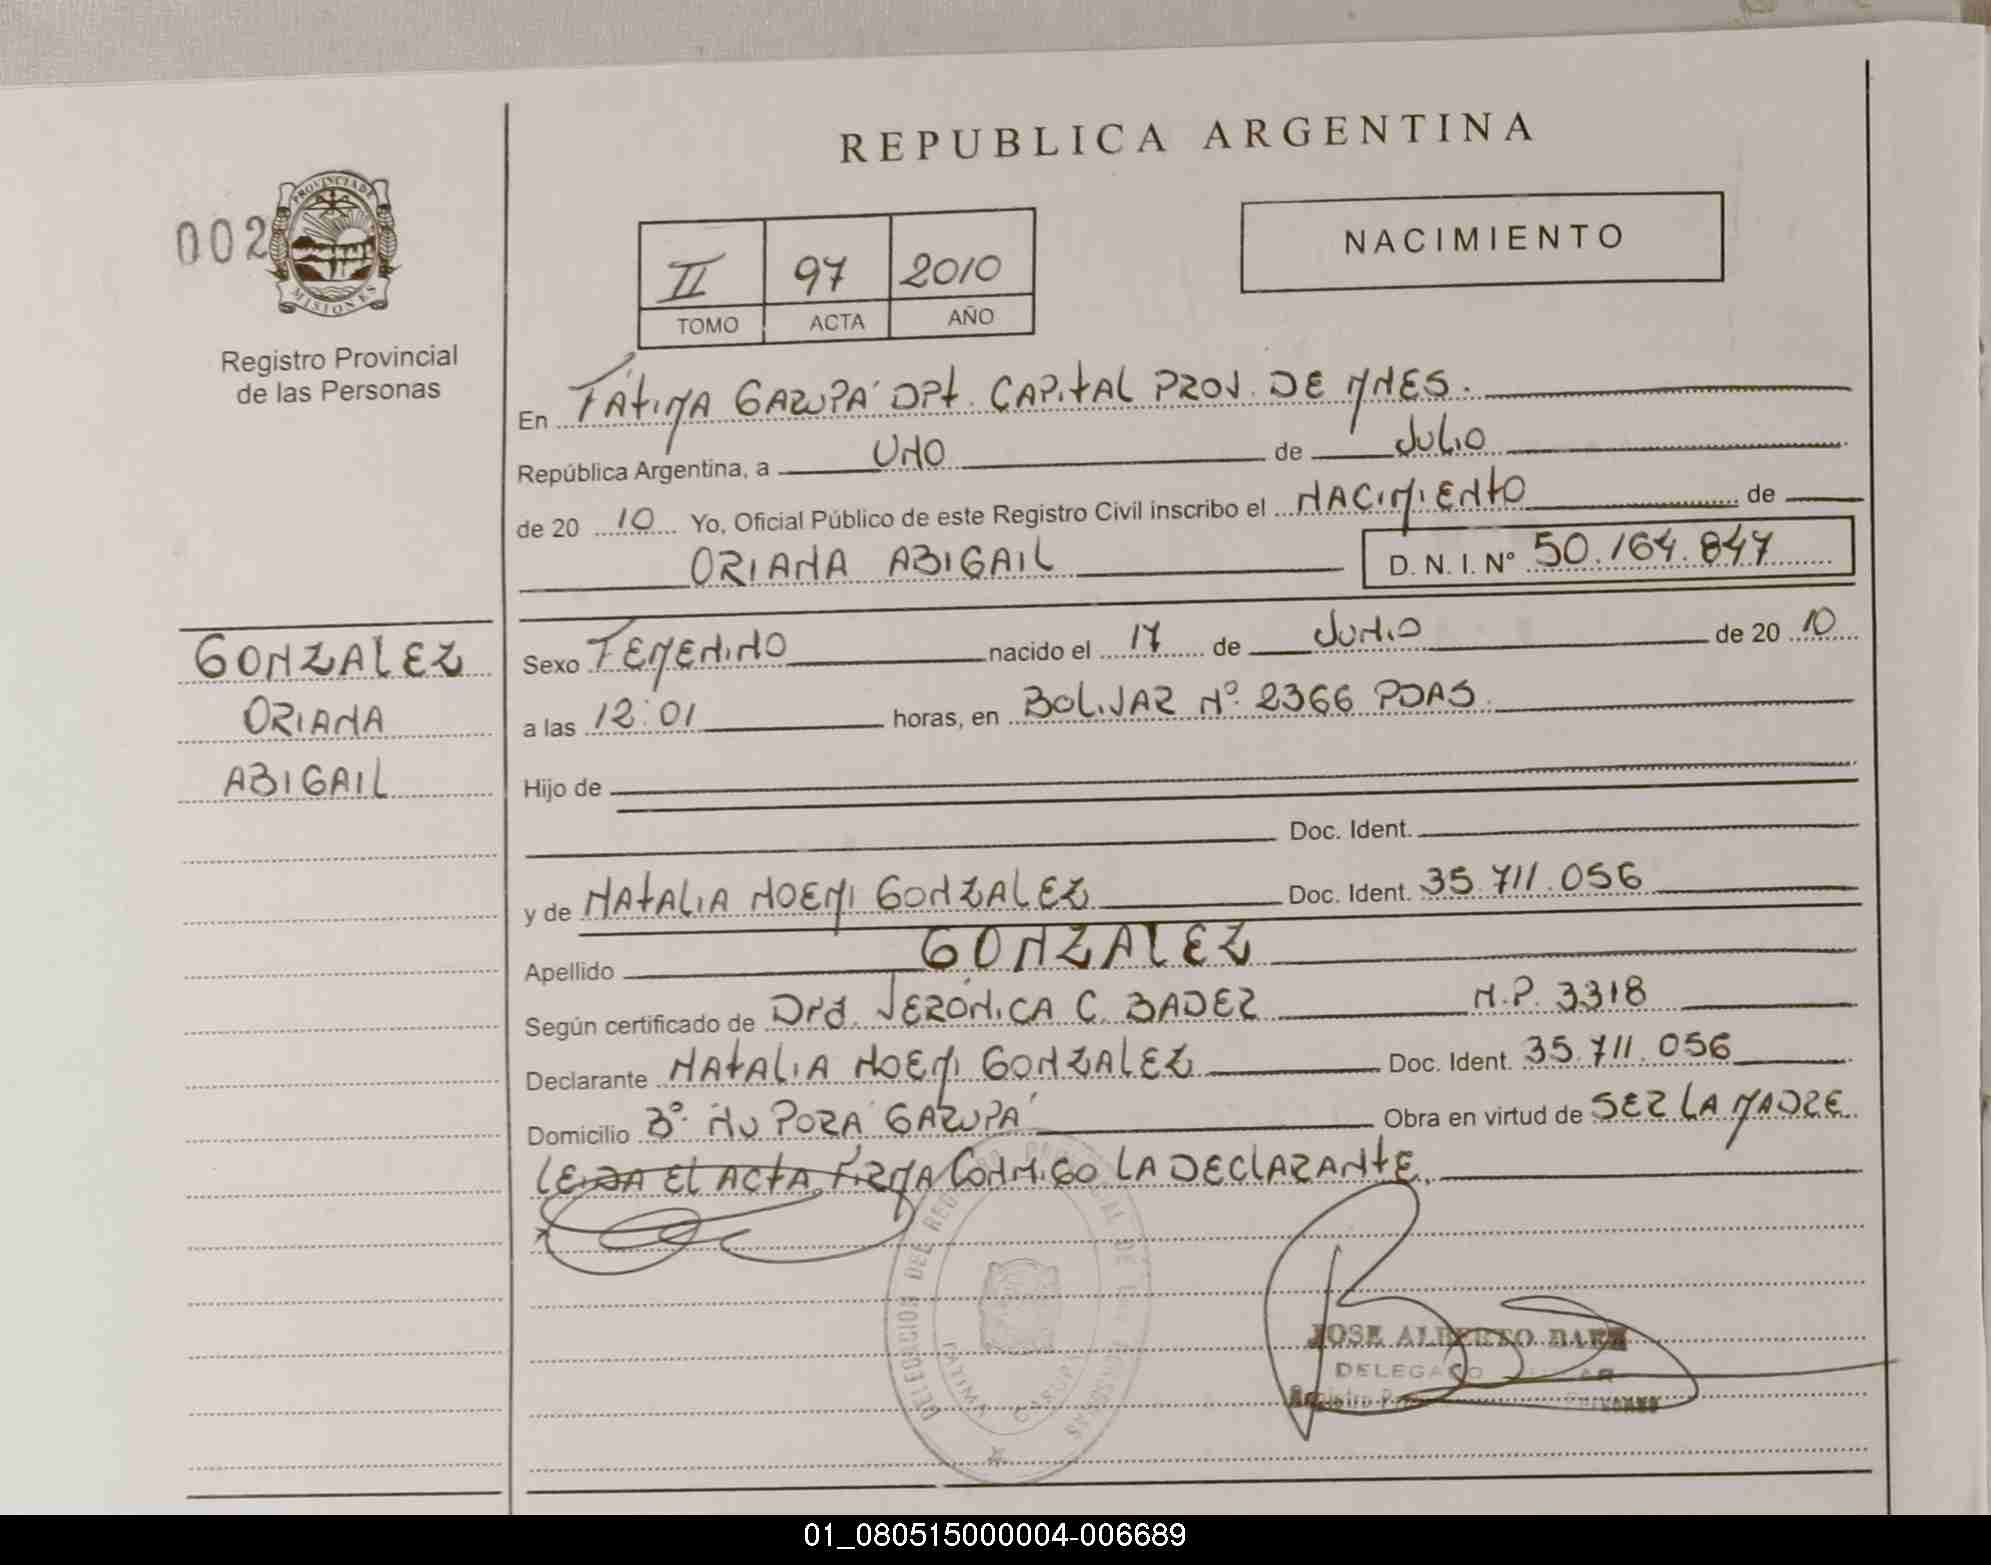 REPUBLICA ARGENTINA
002
PROVINCIA DE
MISIONES
Registro Provincial
de las Personas
II 97 2010
TOMO ACTA AÑO
NACIMIENTO
En FÁTIMA GARUPÁ DPt. CAPITAL PROV. DE MNES.
República Argentina, a UNO de JULIO
de 20 10 Yo, Oficial Público de este Registro Civil inscribo el NACIMIENTO de
ORIANA ABIGAIL D. N. I. N° 50.164.847
GONZALEZ
ORIANA
ABIGAIL
Sexo FEMENINO nacido el 17 de JUNIO de 20 10
a las 12:01 horas, en BOLIVAR Nº 2366 PDAS.
Hijo de
Doc. Ident.
y de NATALIA NOEMI GONZALEZ Doc. Ident. 35.711.056
Apellido GONZALEZ
Según certificado de Dra. VERONICA C. BADER M.P. 3318
Declarante NATALIA NOEMI GONZALEZ Doc. Ident. 35.711.056
Domicilio Bº ÑU PORÁ GARUPÁ Obra en virtud de SER LA MADRE
LEIDA EL ACTA FIRMA CONMIGO LA DECLARANTE.
DELEGACION DEL REGISTRO PROVINCIAL DE LAS PERSONAS
FATIMA GARUPA
JOSE ALBERTO BAEZ
DELEGADO
01_080515000004-006689